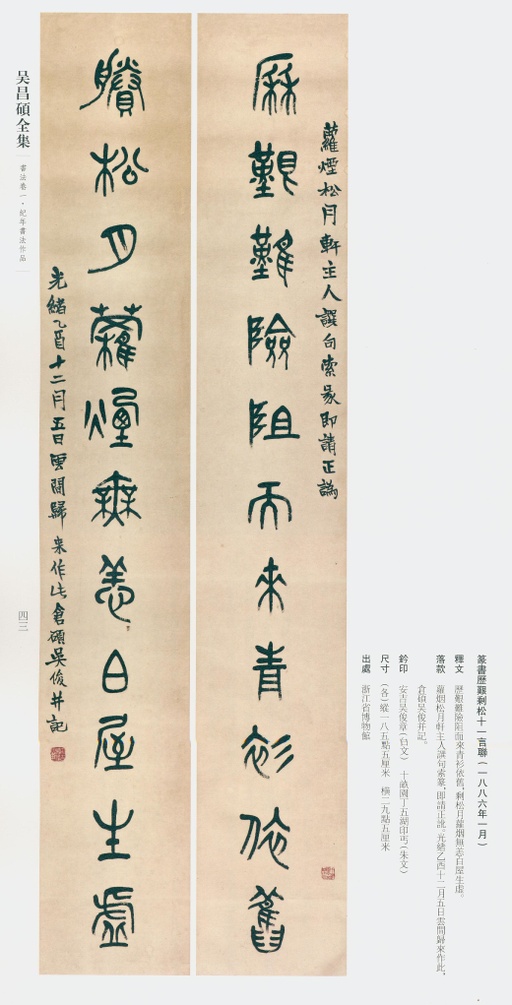 篆書歷艱剩松十一言聯(一八八六年一月)
釋文 歷艱難險阻而來青衫依舊,剩松月蘿烟無恙白屋生虛。
落款 蘿烟松月軒主人譔句索篆,即請正訛。光緒乙酉十二月五日雲間歸來作此,
倉碩吳俊并記。
鈐印 安吉吳俊章(白文) 十畝園丁五湖印丐(朱文)
尺寸 (各)縱一八五點五厘米 橫二九點五厘米
出處 浙江省博物館
蘿煙松月軒主人譔句索篆即請正譌
厤艱難險阻而來青衫依舊
賸松月蘿煙無恙白屋生虛
光緒乙酉十二月五日雲間歸來作此倉碩吳俊并記
吴昌碩全集
書法卷一·紀年書法作品
四三